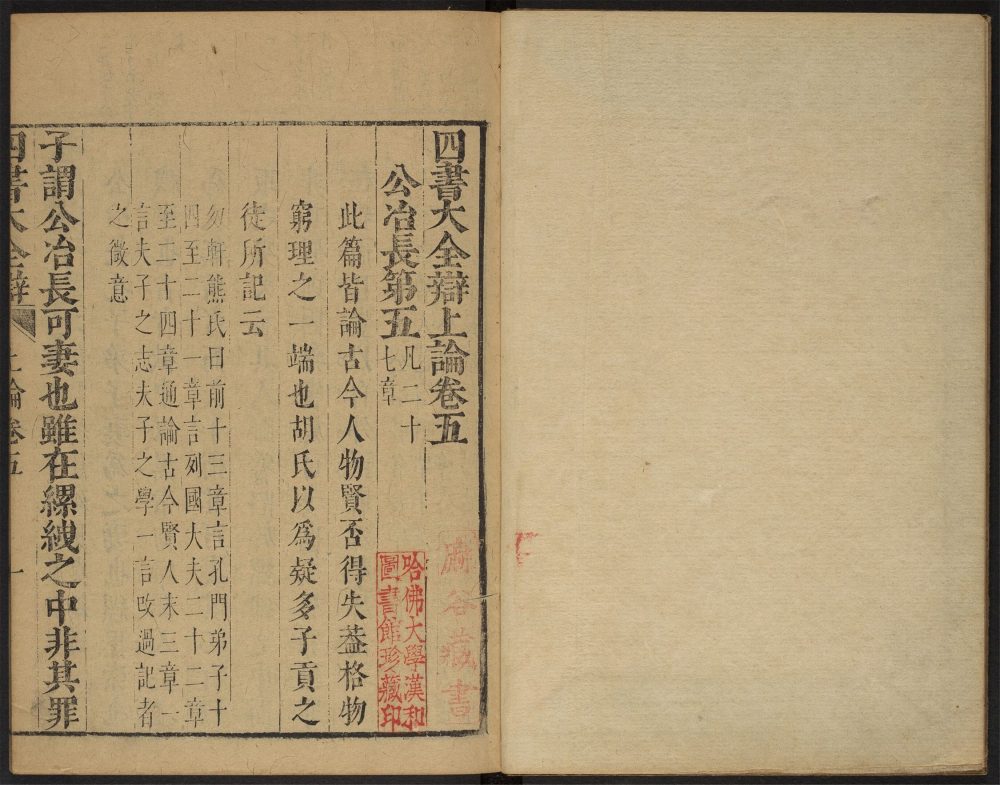 四書大全辯上論卷五
公冶長第五 凡二十
七章
此篇皆論古今人物賢否得失蓋格物
窮理之一端也胡氏以爲疑多子貢之
徒所記云
勿軒熊氏曰前十三章言孔門弟子十
四至二十一章言列國大夫二十二章
至二十四章通論古今賢人末三章一
言夫子之志夫子之學一言攺過記者
之微意
子謂公冶長可妻也雖在縲絏之中非其罪
四書大全辯 上論卷五 一
谷藏書
哈佛大學漢和
圖書館珍藏印